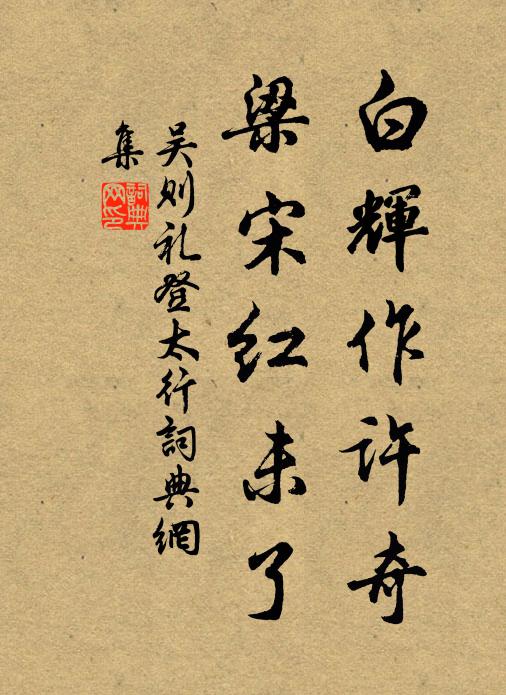 白輝作許奇
梁宋紅未了
吴则礼登太行詞典網
集
詞典网印